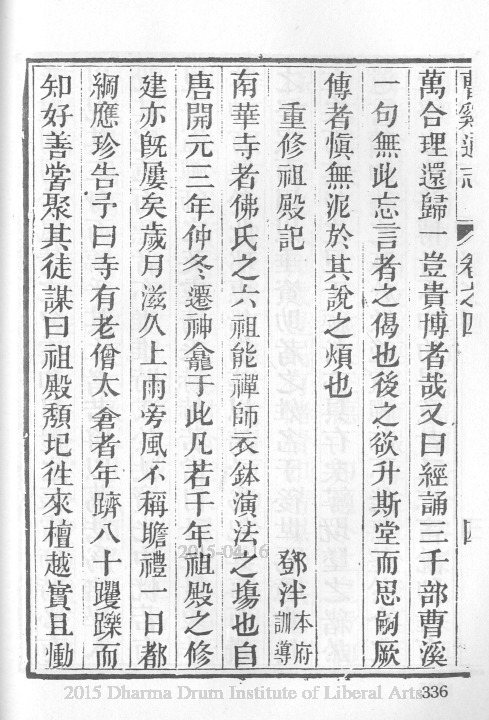 曹溪通志 卷之四 四
萬合理還歸一豈貴博者哉又曰經誦三千部曹溪
一句無此忘言者之偈也後之欲升斯堂而思嗣厥
傳者愼無泥於其說之煩也
重修祖殿記 鄧泮 本府訓導
南華寺者佛氏之六祖能禪師衣鉢演法之塲也自
唐開元三年仲冬遷神龕于此凡若干年祖殿之修
建亦旣屢矣歲月滋久上雨旁風不稱瞻禮一日都
綱應珍告予曰寺有老僧太倉者年躋八十矍鑠而
知好善嘗聚其徒謀曰祖殿頽圮徃來檀越實且慟
2015-04-16
2015 Dharma Drum Institute of Liberal Arts
336